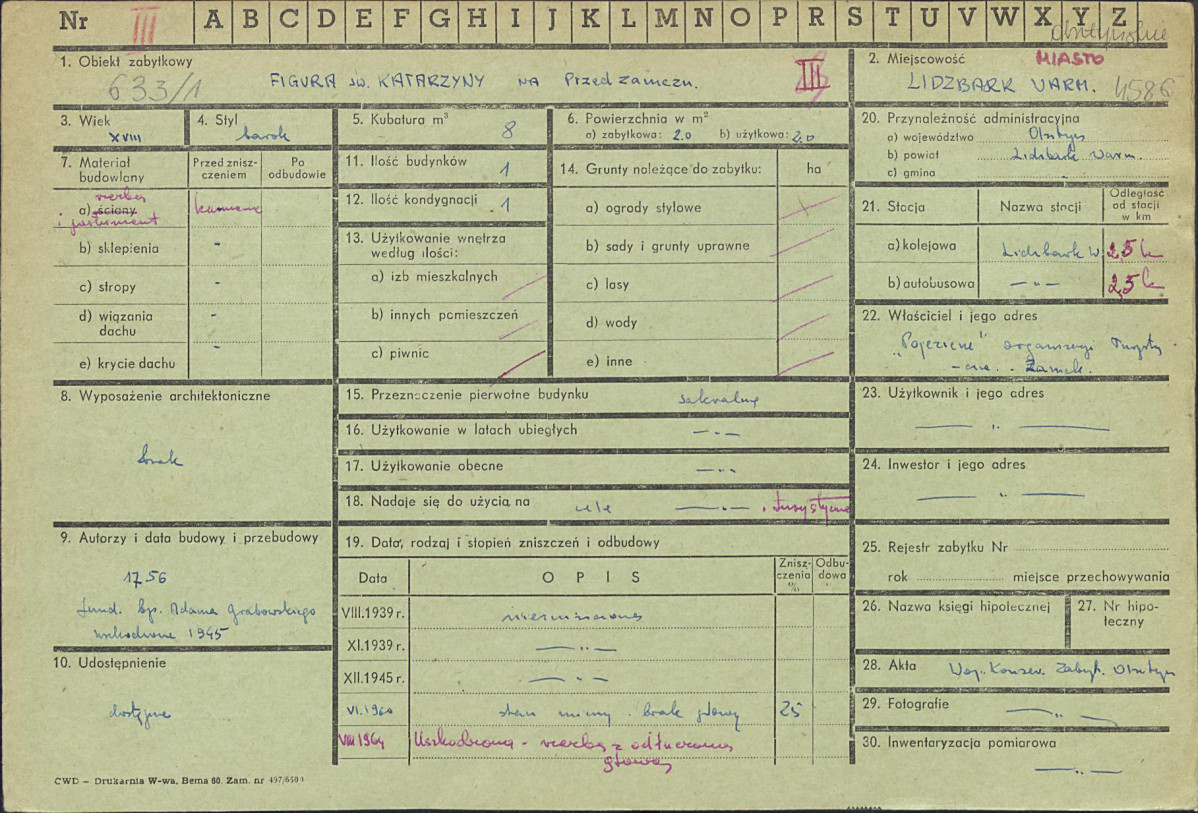 Nr III A B C D E F G H I J K L M N O P R S T U V W X Y Z
1. Obiekt zabytkowy
633/1 FIGURA św. KATARZYNY NA Przedzamczu. III
2. Miejscowość MIASTO
LIDZBARK WARM. 4586
3. Wiek
XVIII
4. Styl
barok
5. Kubatura m³
8
6. Powierzchnia w m²
a) zabytkowa: 2.0 b) użytkowa: 2.0
20. Przynależność administracyjna
a) województwo Olsztyn
b) powiat Lidzbark Warm.
c) gmina
7. Materiał budowlany
Przed zniszczeniem
Po odbudowie
rzeźba
a) ściany kamień
i postument
b) sklepienia -
c) stropy -
d) wiązania dachu -
e) krycie dachu -
11. Ilość budynków 1
12. Ilość kondygnacji 1
13. Użytkowanie wnętrza według ilości:
a) izb mieszkalnych
b) innych pomieszczeń
c) piwnic
14. Grunty należące do zabytku: ha
a) ogrody stylowe
b) sady i grunty uprawne
c) lasy
d) wody
e) inne
21. Stacja Nazwa stacji Odległość od stacji w km
a) kolejowa Lidzbark W. 2,5 k
b) autobusowa — „ — 2,5 k
22. Właściciel i jego adres
"Pojezierze"
Zamek.
8. Wyposażenie architektoniczne
brak
15. Przeznaczenie pierwotne budynku sakralne
16. Użytkowanie w latach ubiegłych — „ —
17. Użytkowanie obecne — „ —
18. Nadaje się do użycia na cele — „ — i turystyczne
23. Użytkownik i jego adres
— „ —
24. Inwestor i jego adres
— „ —
9. Autorzy i data budowy i przebudowy
1756
fund. bp. Adama Grabowskiego
uszkodzone 1945
10. Udostępnienie
dostępne
19. Data, rodzaj i stopień zniszczeń i odbudowy
Data OPIS Zniszczenia % Odbudowa
VIII.1939 r. niezniszczona
XI.1939 r. — „ —
XII.1945 r. — „ —
VI.1960 stan brak głowy 25
VIII 1964 Uszkodzona - rzeźba z odtłuczoną
głową
25. Rejestr zabytku Nr
rok miejsce przechowywania
26. Nazwa księgi hipotecznej
27. Nr hipoteczny
28. Akta Woj. Konserw. Zabyt. Olsztyn
29. Fotografie — „ —
30. Inwentaryzacja pomiarowa
— „ —
CWD – Drukarnia W-wa, Bema 60. Zam. nr 497/6500